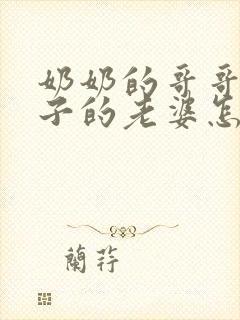 奶奶的哥哥
子的老婆怎
蘭荮